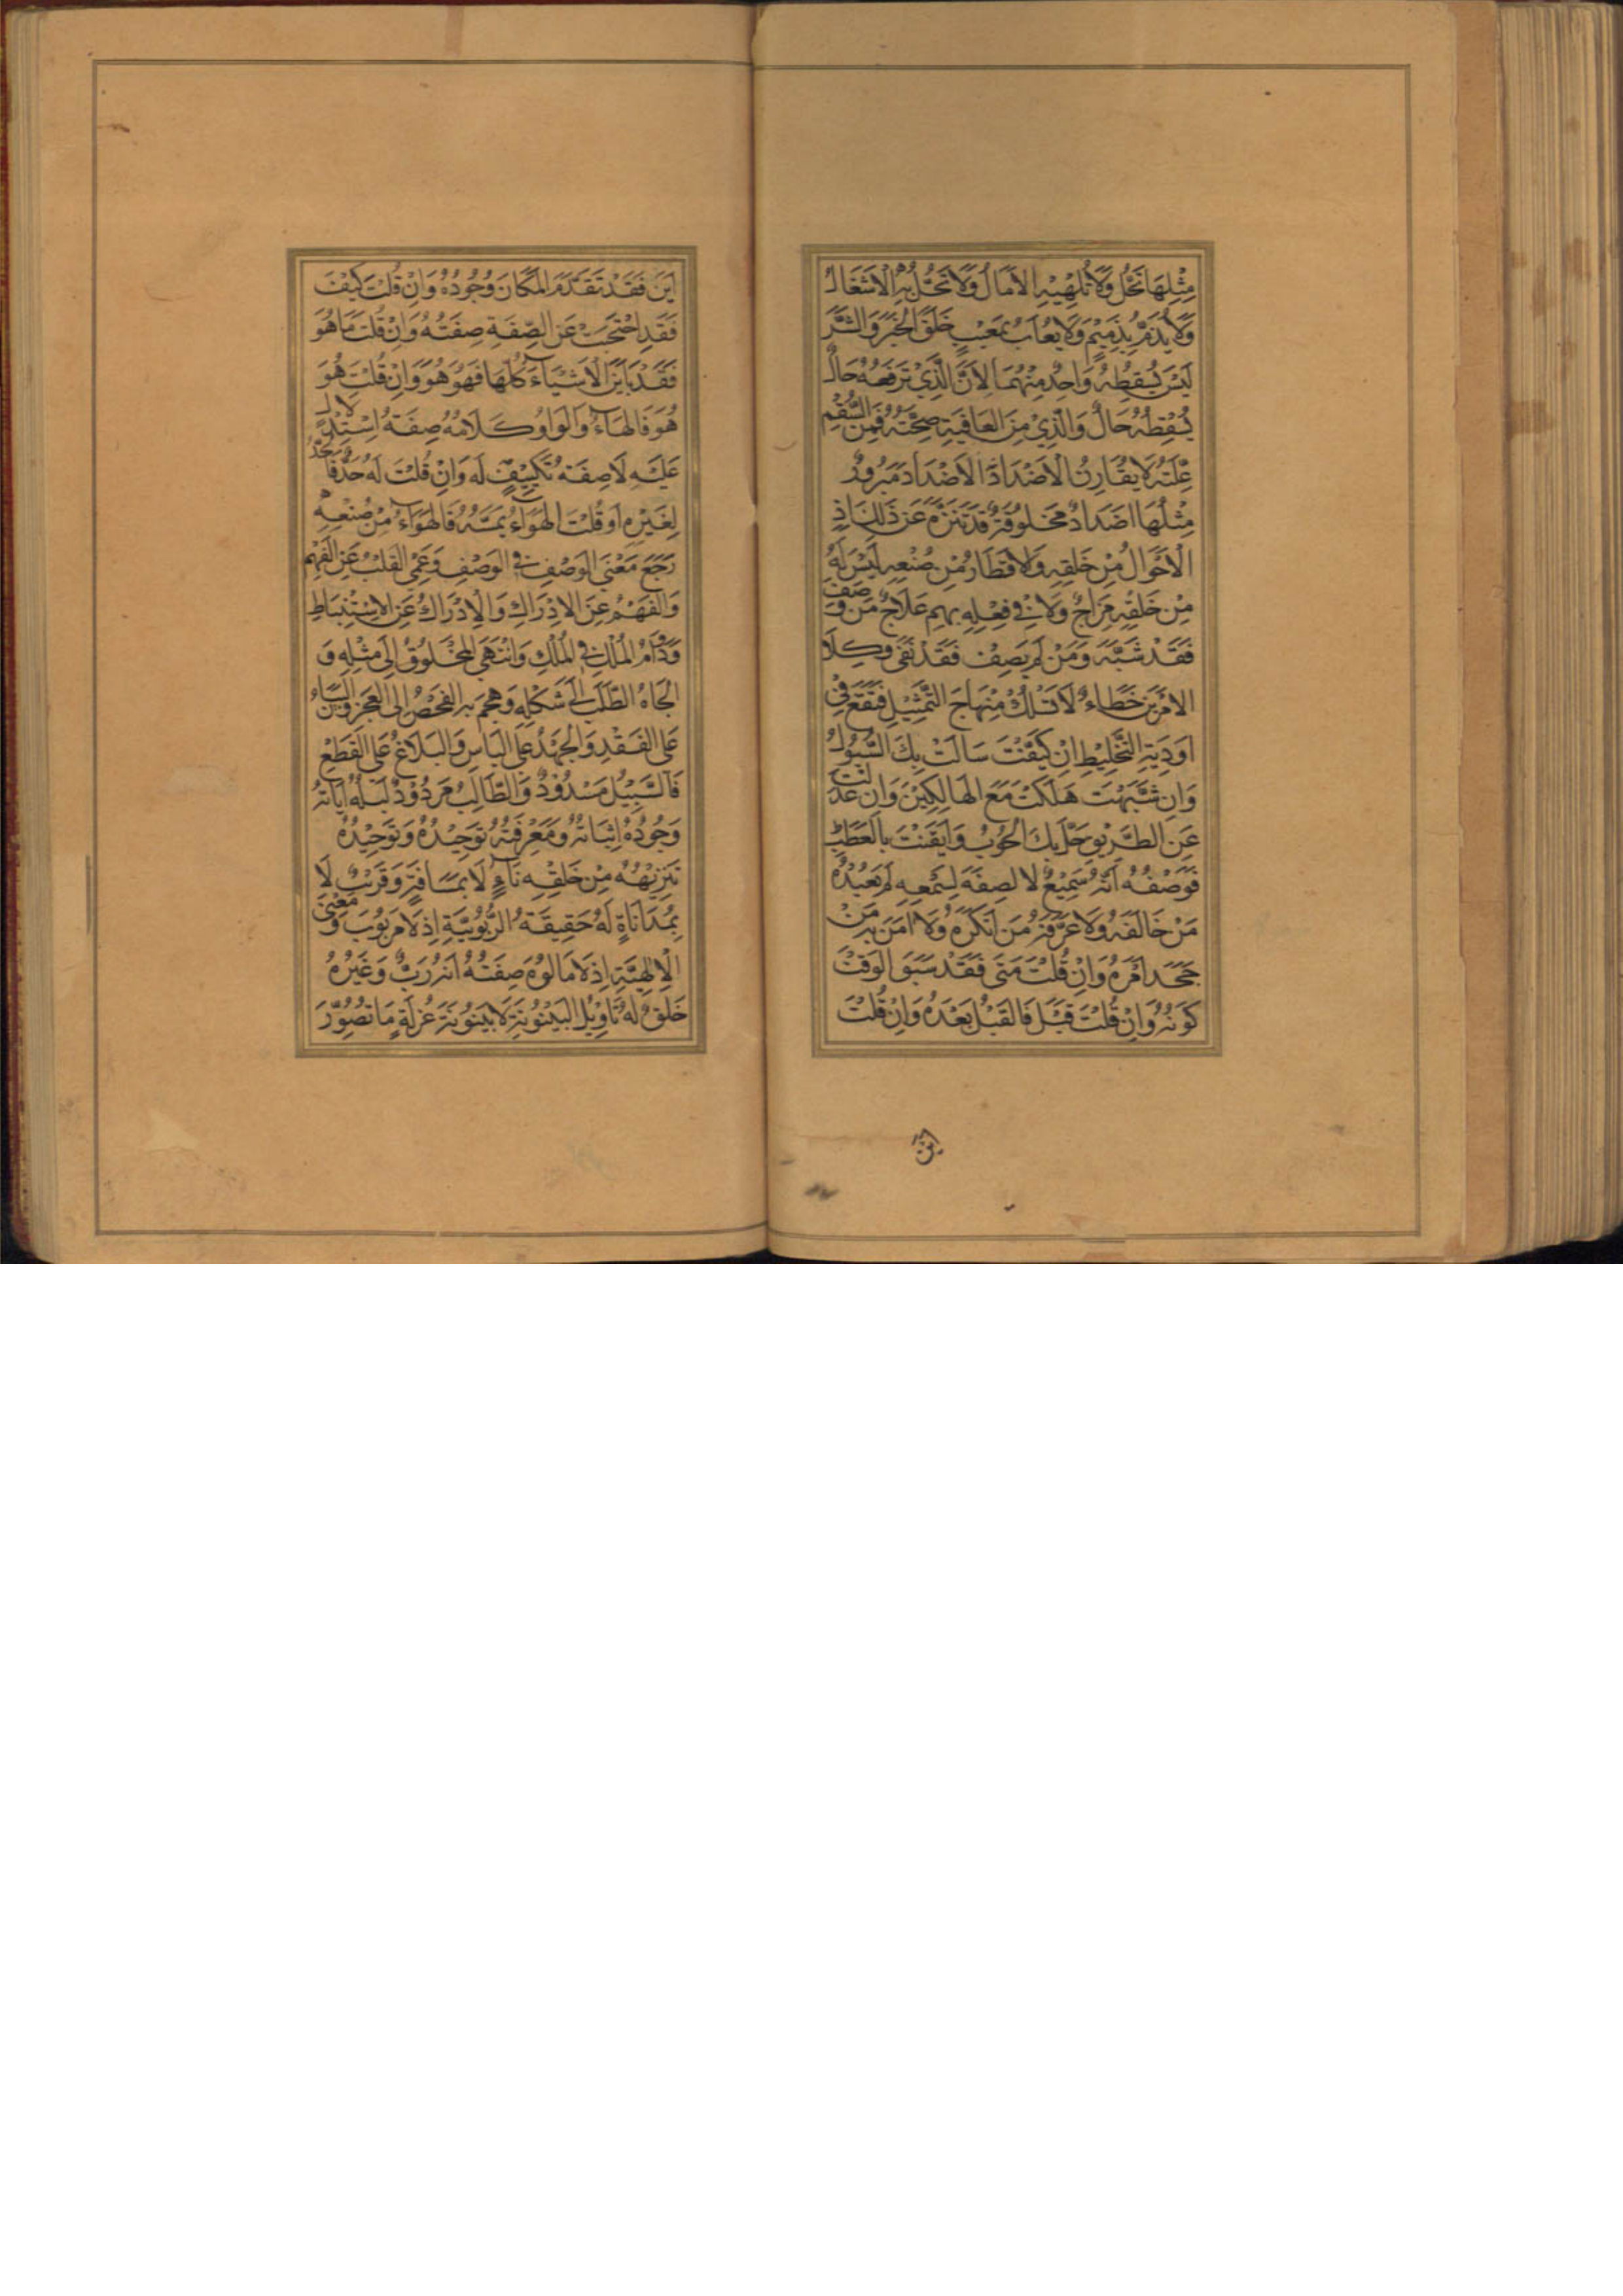 مِثْلِهَا تَحُلُّ وَلَا تُلْهِيْهِ الْاٰمَالُ وَلَا تَحُلُّ بِهِ الْاَشْغَالُ
وَلَا يُذَمُّ بِذَمِيْمٍ وَلَا يُعَابُ بِمَعْيَبٍ خَلَقَ الْخَيْرَ وَالشَّرَّ
لَيْسَ يُسْقِطُهُ وَاحِدٌ مِنْهُمَا لِاَنَّ الَّذِيْ تَرْفَعُهُ حَالٌ
يُسْقِطُهُ حَالٌ وَالَّذِيْ مِنَ الْعَافِيَةِ صِحَّتُهُ فَمِنَ السُّقْمِ
عِلَّتُهُ لَا يُقَارِنُ الْاَضْدَادَ الْاَضْدَاد
مِثْلُهَا اَضْدَادٌ مَخْلُوقَةٌ قَدْ تَنَزَّهَ عَنْ ذٰلِكَ اِذِ
الْاَحْوَالُ مِنْ خَلْقِهِ وَالْاَقْطَارُ مِنْ صُنْعِهِ لَيْسَ لَهُ
مِنْ خَلْقِهِ مِزَاجٌ وَلَا فِيْ فِعْلِهِ بِهِمْ عِلَاجٌ مَنْ وَصَفَ
فَقَدْ شَبَّهَ وَمَنْ لَمْ يَصِفْ فَقَدْ نَفَى وَكِلَا
الْاَمْرَيْنِ خَطَاءٌ لَا تَسْلُكْ مِنْهَاجَ التَّمْثِيْلِ فَتَقَعَ فِيْ
اَوْدِيَةِ التَّخْلِيْطِ اِنْ كَيَّفْتَ سَالَتْ بِكَ السُّيُولُ
وَاِنْ شَبَّهْتَ هَلَكْتَ مَعَ الْهَالِكِيْنَ وَاِنْ عَدَلْتَ
عَنِ الطَّرِيْقِ حَلَّ بِكَ الْحُوْبُ وَاَيْقَنْتَ بِالْعَطَبِ
فَوَصْفُهُ اَنَّهُ سَمِيْعٌ لَا لِصِفَةٍ لِسَمْعِهِ لَمْ يَعْبُدْهُ
مَنْ خَالَفَهُ وَلَا عَرَفَهُ مَنْ اَنْكَرَهُ وَلَا اٰمَنَ بِهِ مَنْ
جَحَدَ اَمْرَهُ وَاِنْ قُلْتَ مَتَى فَقَدْ سَبَقَ الْوَقْتَ
كَوْنُهُ وَاِنْ قُلْتَ قَبْلَ فَالْقَبْلُ بَعْدَهُ وَاِنْ قُلْتَ
اَيْنَ
اَيْنَ فَقَدْ تَقَدَّمَ الْمَكَانَ وُجُودُهُ وَاِنْ قُلْتَ كَيْفَ
فَقَدِ احْتَجَبَ عَنِ الصِّفَةِ صِفَتُهُ وَاِنْ قُلْتَ مَا هُوَ
فَقَدْ بَايَنَ الْاَشْيَاءَ كُلَّهَا فَهُوَ هُوَ وَاِنْ قُلْتَ هُوَ
هُوَ فَالْهَاءُ وَالْوَاوُ كَلَامُهُ صِفَةُ اسْتِدْلَالٍ
عَلَيْهِ لَا صِفَةُ تَكْيِيْفٍ لَهُ وَاِنْ قُلْتَ لَهُ حَدٌّ فَالْحَدُّ
لِغَيْرِهِ اَوْ قُلْتَ الْهَوَاءُ يَمَسُّهُ فَالْهَوَاءُ مِنْ صُنْعِهِ
رَجَعَ مَعْنَى الْوَصْفِ فِي الْوَصْفِ وَعَمِيَ الْقَلْبُ عَنِ الْفَهْمِ
وَالْفَهْمُ عَنِ الْاِدْرَاكِ وَالْاِدْرَاكُ عَنِ الْاِسْتِنْبَاطِ
وَدَامَ الْمُلْكُ فِي الْمُلْكِ وَانْتَهَى الْمَخْلُوْقُ اِلَى مِثْلِهِ وَ
اَلْجَاهُ الطَّلَبُ اِلَى شَكْلِهِ وَهَجَمَ بِهِ الْفَحْصُ اِلَى الْعَجْزِ وَالْبَيَانُ
عَلَى الْفَقْدِ وَالْجُهْدُ عَلَى الْيَاْسِ وَالْبَلَاغُ عَلَى الْقَطْعِ
فَالسَّبِيْلُ مَسْدُوْدٌ وَالطَّالِبُ مَرْدُوْدٌ دَلِيْلُهُ اٰيَاتُهُ
وَجُوْدُهُ اِثْبَاتُهُ وَمَعْرِفَتُهُ تَوْحِيْدُهُ وَتَوْحِيْدُهُ
تَنْزِيْهُهُ مِنْ خَلْقِهِ نَاءٍ لَا بِمَسَافَةٍ وَقَرِيْبٌ لَا
بِمُدَانَاةٍ لَهُ حَقِيْقَةُ الرُّبُوْبِيَّةِ اِذْ لَا مَرْبُوْبَ وَمَعْنَى
الْاِلٰهِيَّةِ اِذْ لَا مَاْلُوْهَ صِفَتُهُ اَنَّهُ رَبٌّ وَغَيْرُهُ
خَلْقٌ لَهُ تَاْوِيْلُ الْبَيْنُوْنَةِ لَا بَيْنُوْنَةَ عُزْلَةٍ مَا تُصُوِّرَ